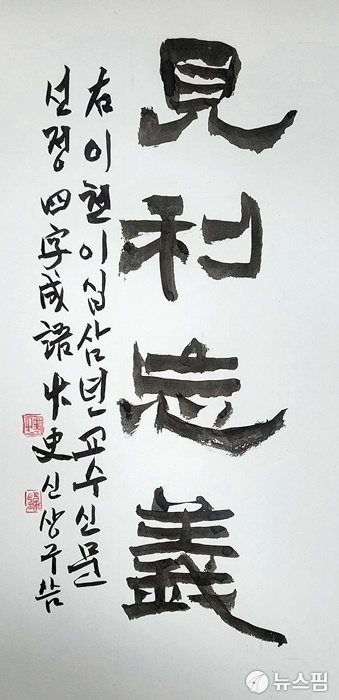 見利忘義
右 이천이십삼년 교수신문
선정 四字成語 史 신상구 씀
뉴스핌